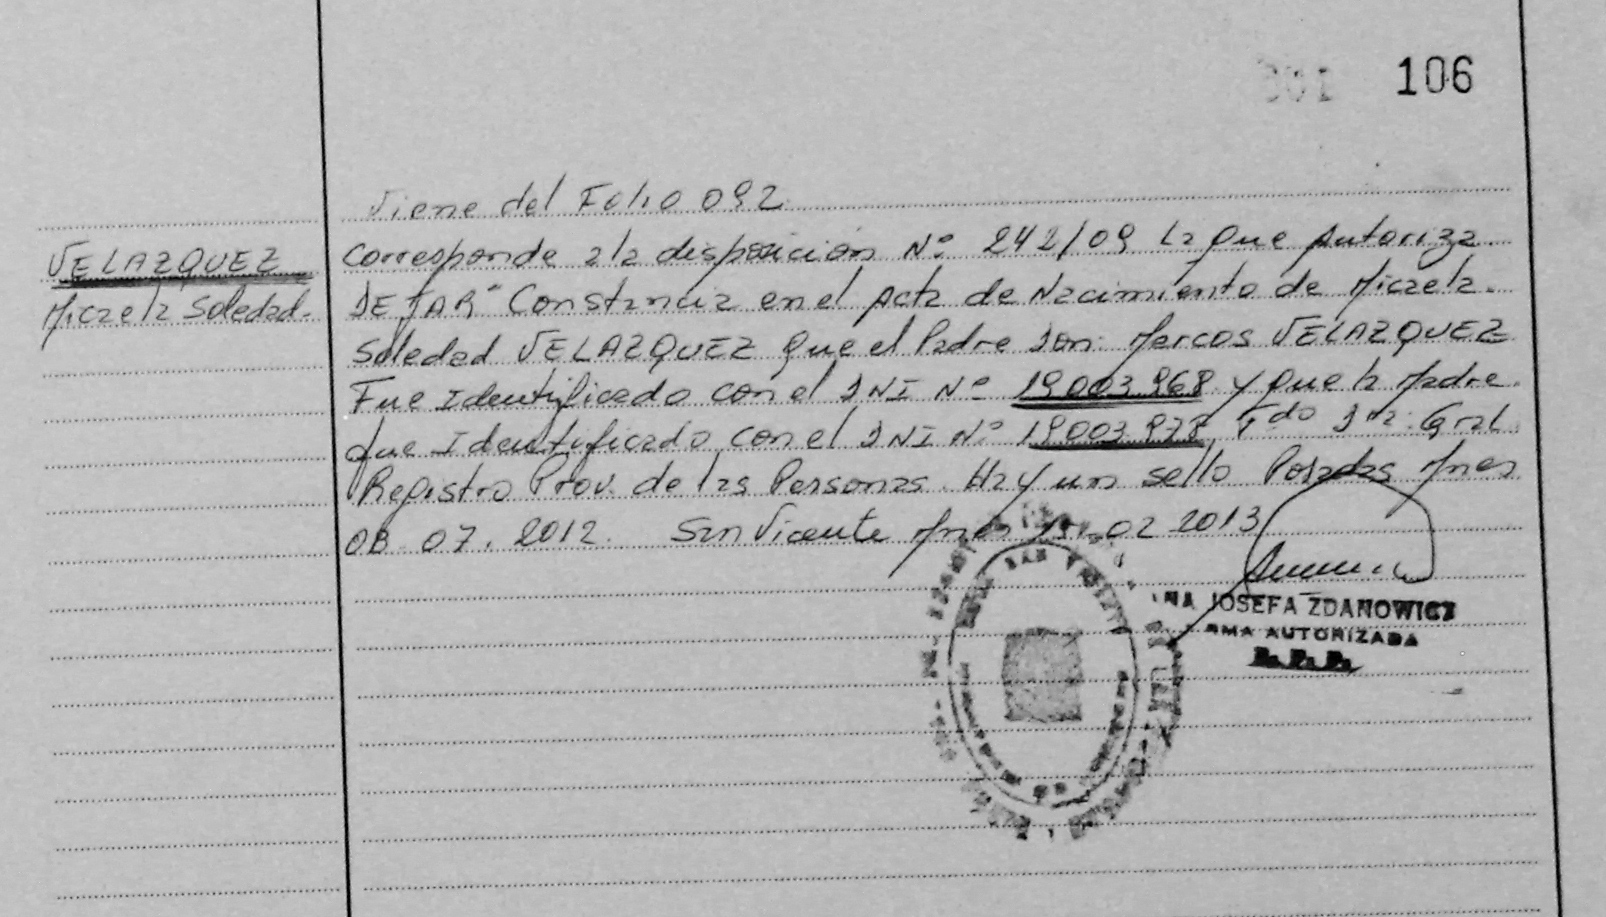 106
Viene del Folio 092
VELAZQUEZ
Micaela Soledad.
Corresponde a la disposición Nº 242/09 La que Autoriza.
DEJAR" Constancia en el Acta de Nacimiento de Micaela.
Soledad VELAZQUEZ que el Padre Don: Marcos VELAZQUEZ
Fue Identificado con el DNI Nº 19003.968 y que la Madre.
fue Identificado con el DNI Nº 19003.978 Fdo Dra. Gral.
Registro Prov. de las Personas. Hay un sello Posadas Mnes
08. 07. 2012. San Vicente Mnes 02 2013
JOSEFA ZDANOWICZ
AUTORIZADA
R.P.P.